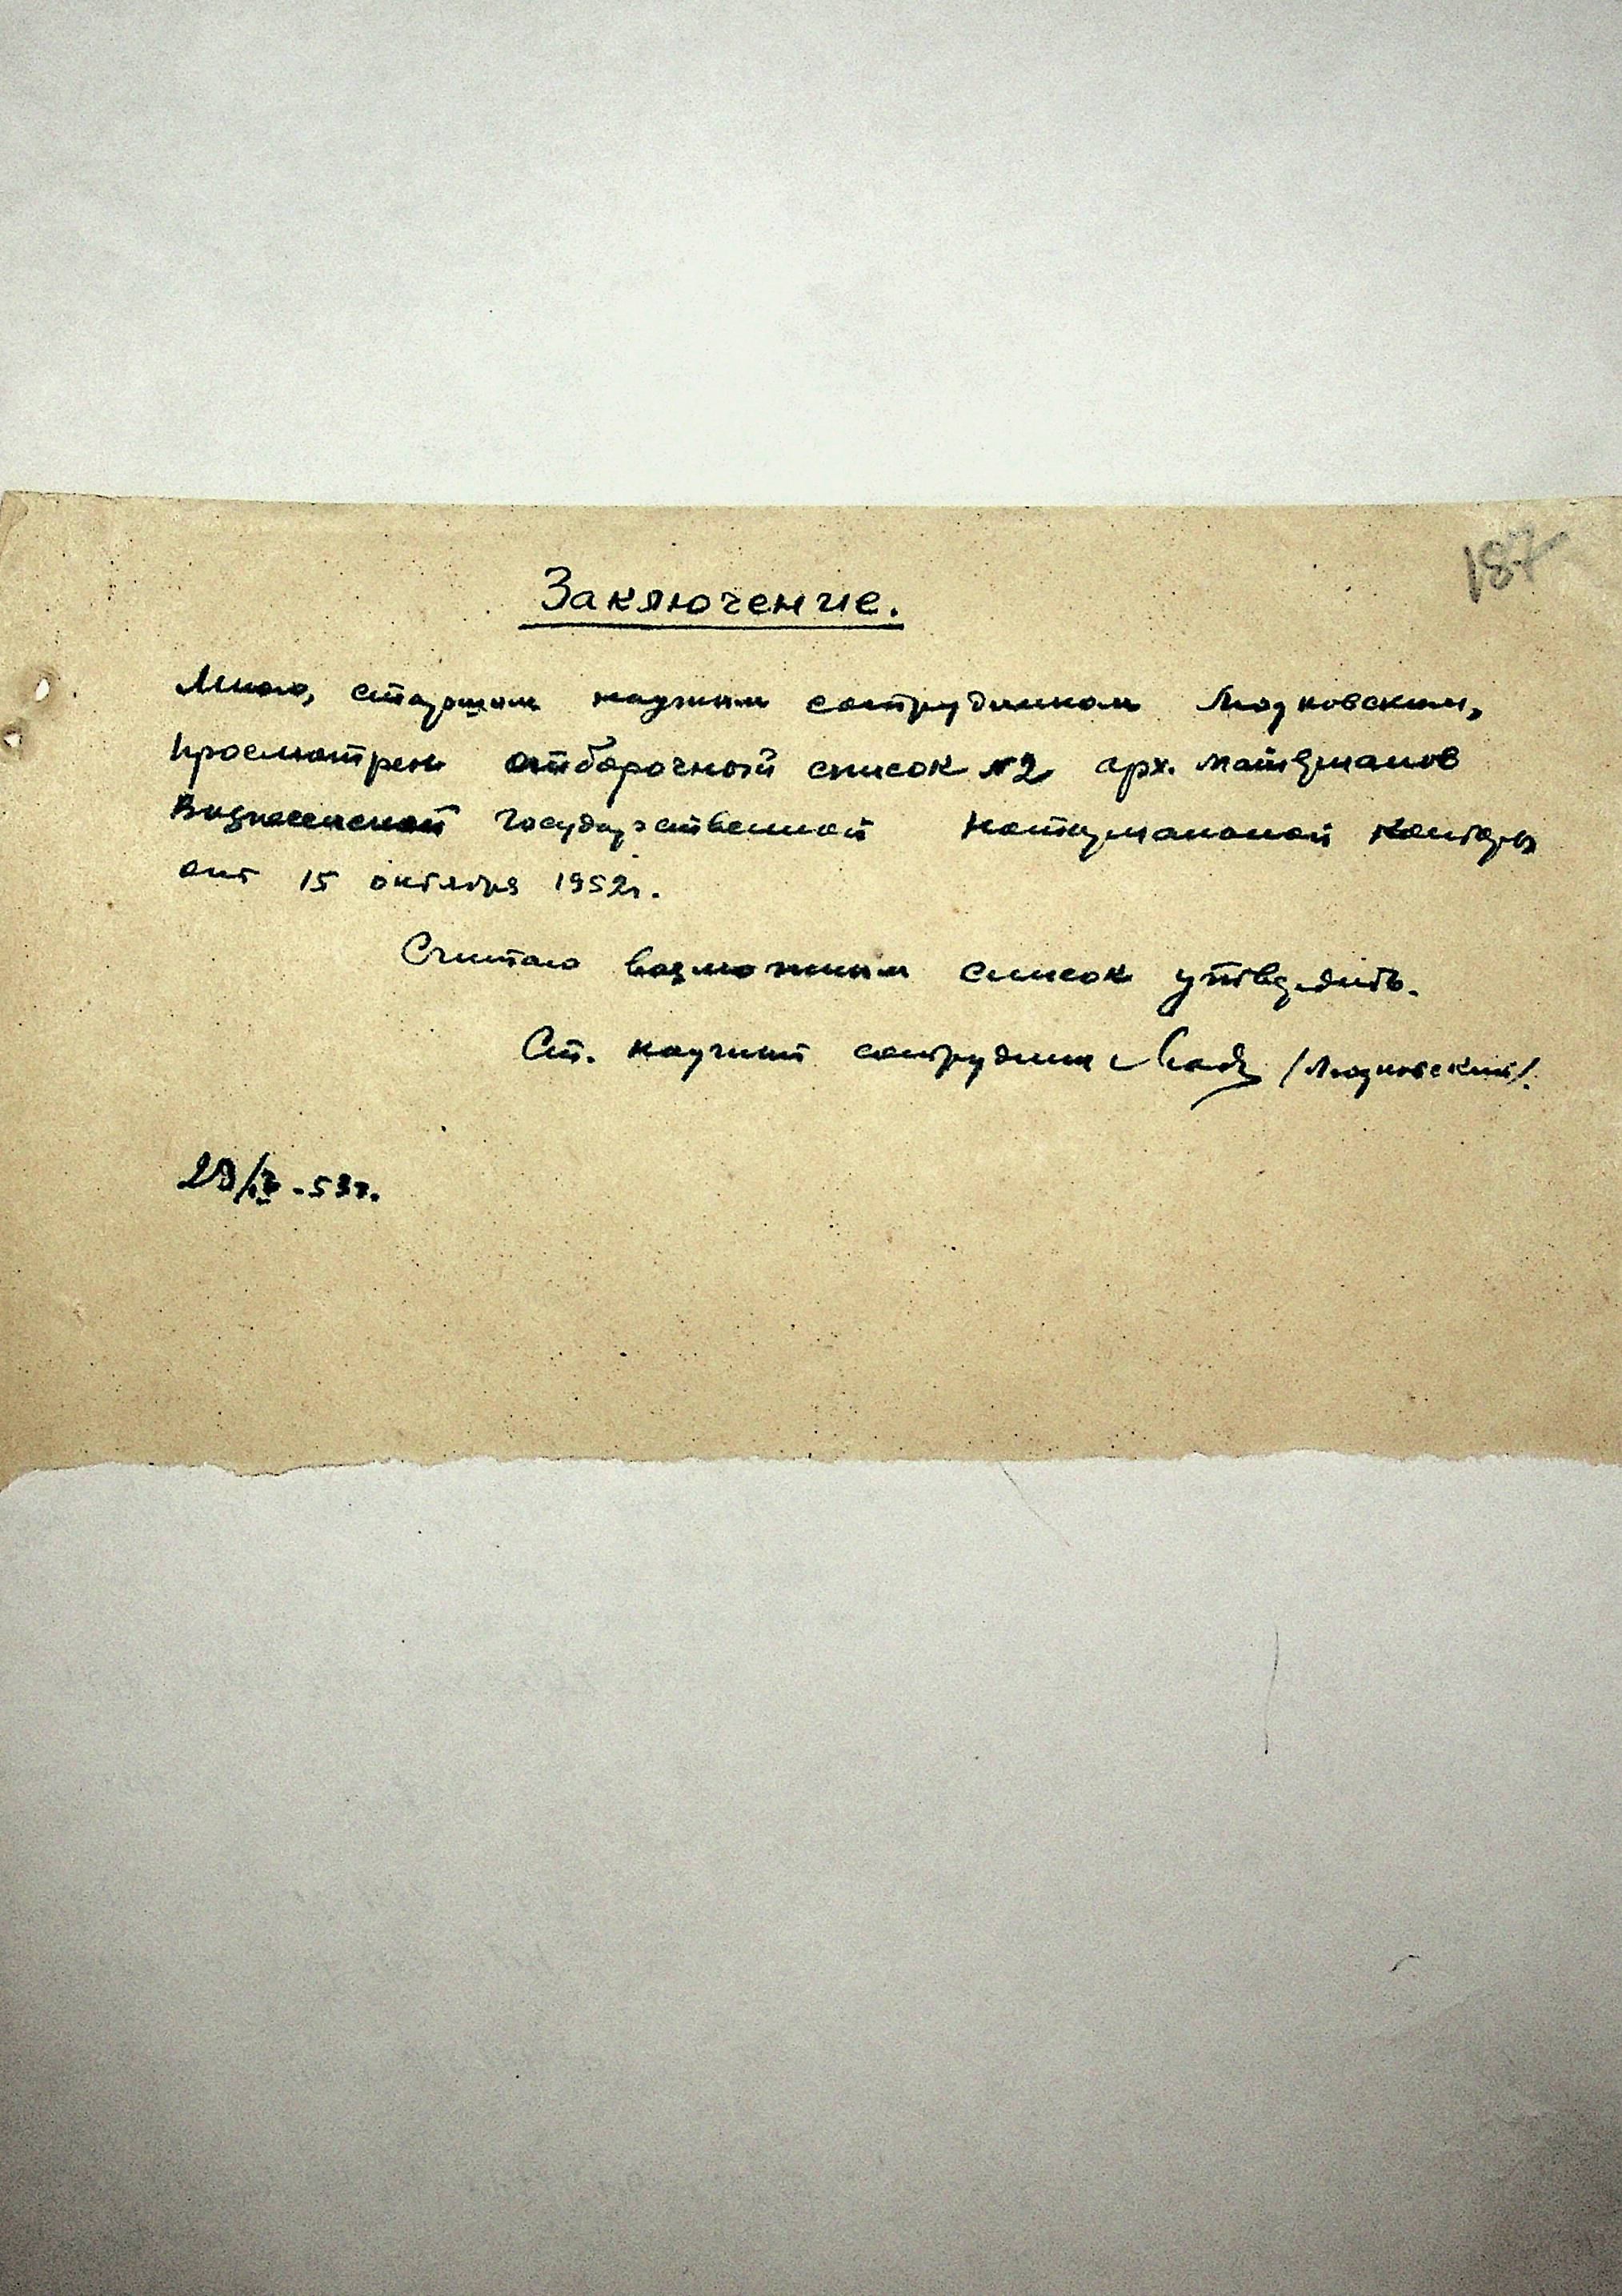 187
Заключение.
Мною, старшим научным сотрудником
просмотрен отборочный список №2 арх. материалов
Вознесенской государственной нотариальной конторы
от 15 октября 1952г.
Считаю возможным список утвердить.
Ст. научный сотрудник
29/IV-53г.